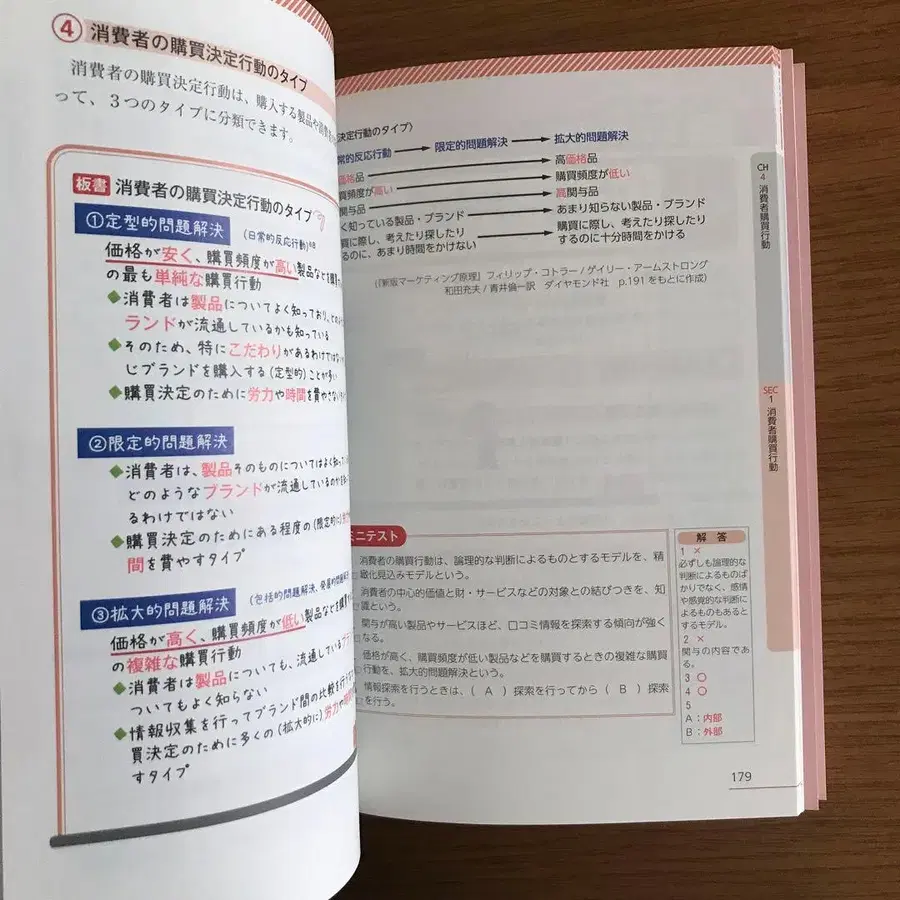 ④ 消費者の購買決定行動のタイプ
消費者の購買決定行動は、購入する製品や消費者
って、３つのタイプに分類できます。
板書 消費者の購買決定行動のタイプ
①定型的問題解決 (日常的反応行動)
価格が安く、購買頻度が高い製品などを購
の最も単純な購買行動
◆消費者は製品についてよく知っており、どのよう
ランドが流通しているかも知っている
◆そのため、特にこだわりがあるわけではな
じブランドを購入する(定型的)ことが多い
◆購買決定のために労力や時間を費やさない
②限定的問題解決
◆消費者は、製品そのものについてはよく知ってい
どのようなブランドが流通しているのかを
るわけではない
◆購買決定のためにある程度の(限定的に)労
間を費やすタイプ
③拡大的問題解決 (包括的問題解決、発展的問題解決
価格が高く、購買頻度が低い製品などを購
の複雑な購買行動
◆消費者は製品についても、流通している
ついてもよく知らない
◆情報収集を行ってブランド間の比較を行
買決定のために多くの(拡大的に)労力や
すタイプ
決定行動のタイプ〉
常的反応行動 → 限定的問題解決 → 拡大的問題解決
価格品 高価格品
買頻度が高い 購買頻度が低い
関与品 高関与品
く知っている製品・ブランド あまり知らない製品・ブランド
買に際し、考えたり探したり 購買に際し、考えたり探したり
のに、あまり時間をかけない するのに十分時間をかける
(『新版マーケティング原理』フィリップ・コトラー/ゲイリー・アームストロング
和田充夫/青井倫一訳 ダイヤモンド社 p.191 をもとに作成)
CH
4
消費者購買行動
SEC
1
消費者購買行動
ミニテスト
消費者の購買行動は、論理的な判断によるものとするモデルを、精
緻化見込みモデルという。
消費者の中心的価値と財・サービスなどの対象との結びつきを、知
識という。
関与が高い製品やサービスほど、口コミ情報を探索する傾向が強く
なる。
価格が高く、購買頻度が低い製品などを購買するときの複雑な購買
行動を、拡大的問題解決という。
情報探索を行うときは、（ A ）探索を行ってから（ B ）探索
を行う。
解 答
1 ×
必ずしも論理的な
判断によるものば
かりでなく、感情
や感覚的な判断に
よるものもあると
するモデル。
2 ×
関与の内容であ
る。
3 ○
4 ○
5
A：内部
B：外部
179